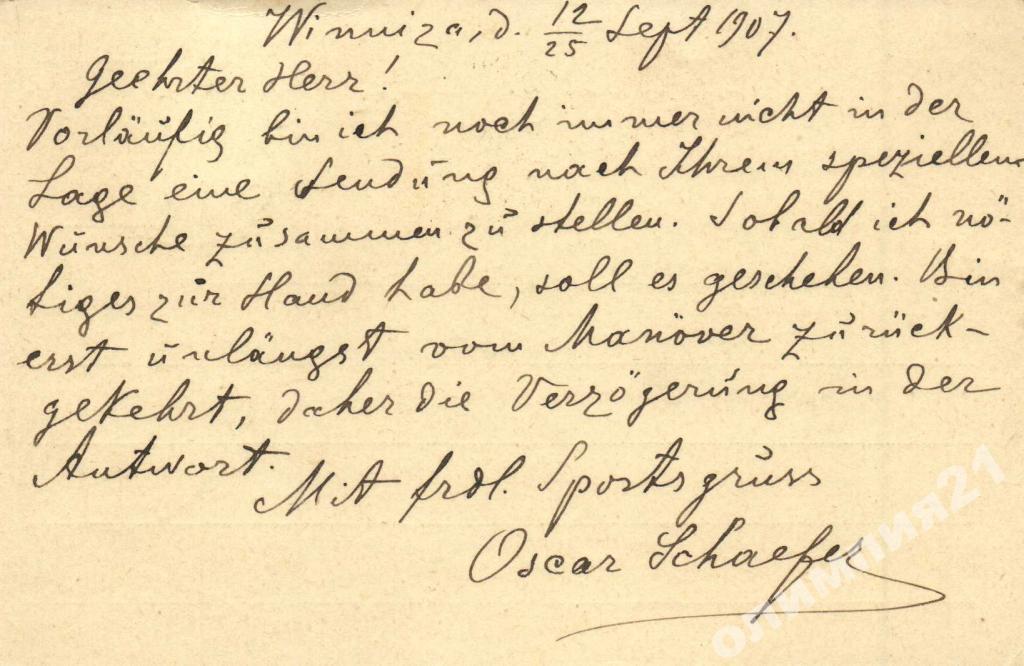 Winniza, d. 12/25 Sept 1907.
Geehrter Herr!
Vorläufig bin ich noch immer nicht in der
Lage eine Sendung nach Ihrem speziellen
Wunsche zusammen zu stellen. Sobald ich nö-
tiges zur Hand habe, soll es geschehen. Bin
erst unlängst vom Manöver zurück-
gekehrt, daher die Verzögerung in der
Antwort.
Mit frdl. Sportsgruss
Oscar Schaefer
олимпия21